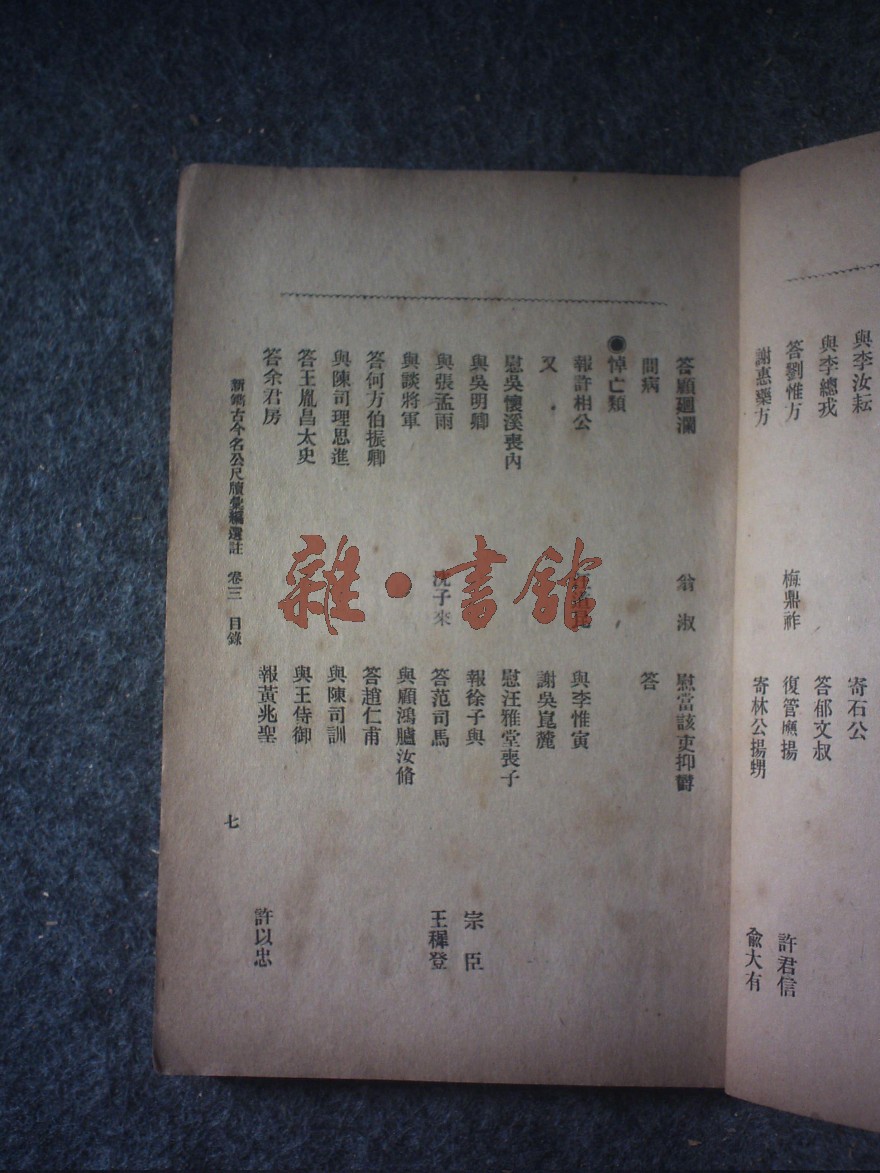 與李汝耘
與李總戎 寄石公
答劉惟方 梅鼎祚 答郁文叔
謝惠藥方 復管鷹揚 許君信
寄林公揚甥 俞大有
答顧迴瀾 翁淑 慰當該吏抑鬱
問病 答
●悼亡類
報許相公 與李惟寅
又 謝吳崑麓
慰吳懷溪喪內 慰汪雅堂喪子
與吳明卿 報徐子與 宗臣
與張孟雨 沈子來 答范司馬 王穉登
與談將軍 與顧鴻臚汝脩
答何方伯振卿 答趙仁甫
與陳司理思進 與陳司訓
答王胤昌太史 與王侍御
答余君房 報黃兆聖 許以忠
新鐫古今名公尺牘彙編選註 卷三 目錄 七
雜·書館